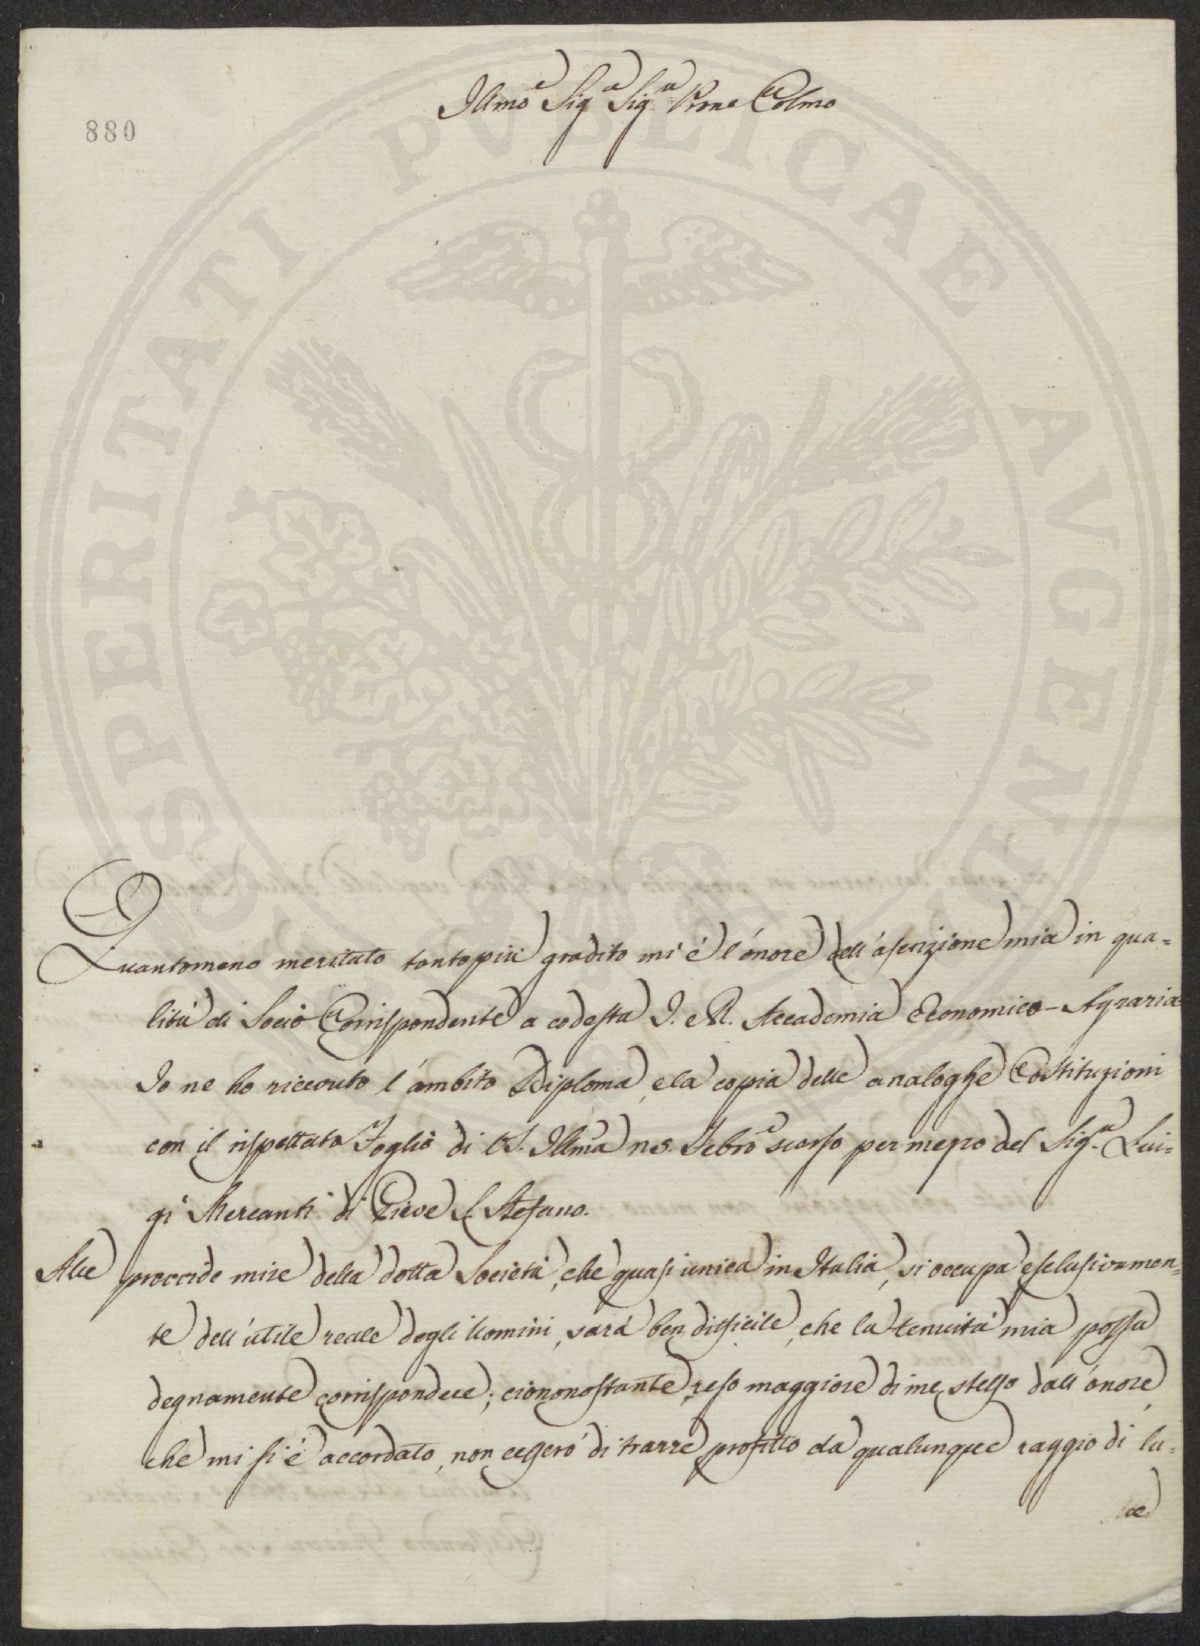 Illmo Sig.e Sig.e Prone Colmo
880
Quantomeno meritato tantopiù gradito mi è l'onore dell'ascrizione mia in qua-
lità di Socio Corrispondente a codesta I. e R. Accademia Economico-Agraria
Io ne ho ricevuto l'ambito Diploma, e la copia delle analoghe Costituzioni
con il rispettato Foglio di VS. Illma n 5. Febro scorso per mezzo del Sig.e Lui-
gi Mercanti di Pieve S. Stefano.
Alle mire della dotta Società, che quasi unica in Italia, si occupa esclusivamen-
te dell'utile reale degli Uomini, sarà ben difficile, che la tenuità mia possa
degnamente corrispondere; ciononostante, reso maggiore di me stesso dall'onore,
che mi si è accordato, non cesserò di trarre profitto da qualunque raggio di lu-
ce
PROSPERITATI PVBLICAE AVGENDAE